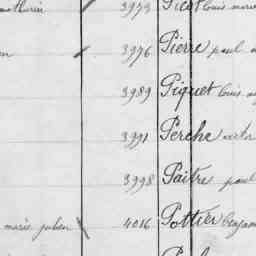 3973 Picot louis marie
3976 Pierre paul
3989 Piquet louis
3991 Perche victor
3998 Paitre paul
marie julien 4016 Pottier benjamin